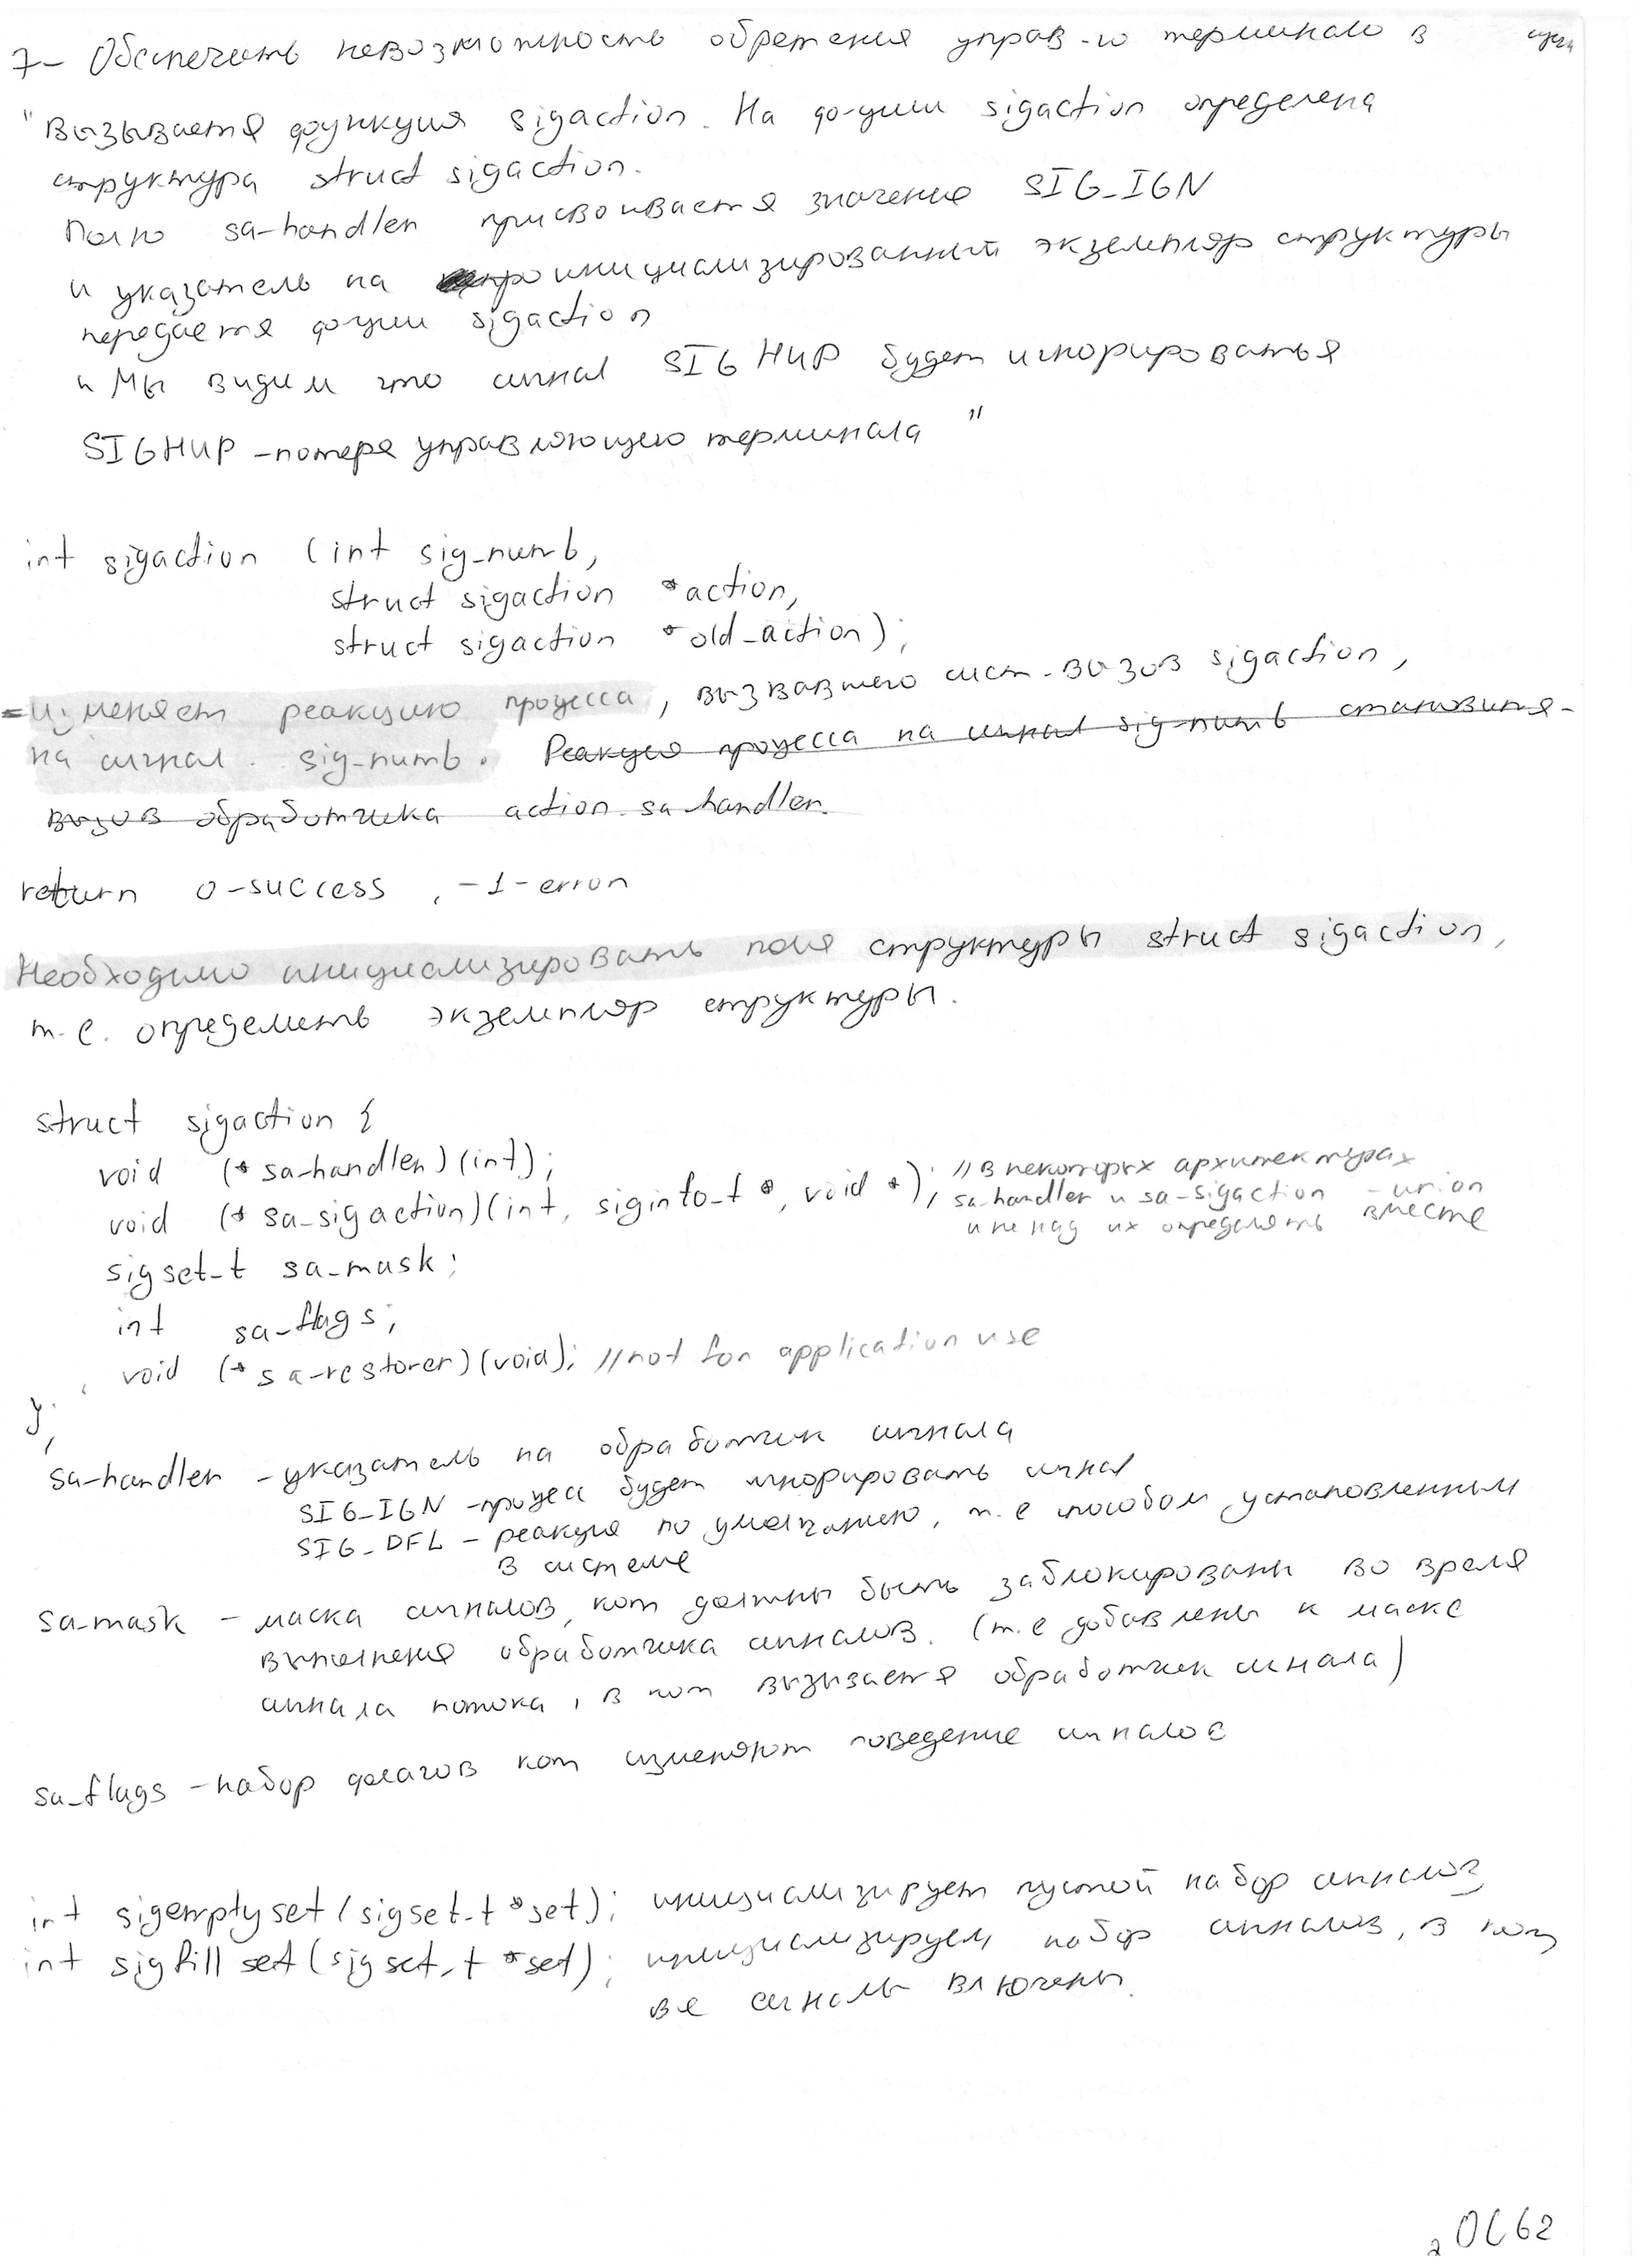 7- Обеспечить невозможность обретения управ-го терминала в
"Вызывается функция sigaction. На ф-ции sigaction определена
структура struct sigaction.
Полю sa-handler присвоивается значение SIG_IGN
и указатель на проинициализированный экземпляр структуры
передается ф-ции sigaction
и Мы видим что сигнал SIGHUP будет игнорироваться
SIGHUP - потеря управляющего терминала"
int sigaction (int sig_numb,
struct sigaction *action,
struct sigaction *old_action);
= изменяет реакцию процесса, вызвавшего сист. вызов sigaction,
на сигнал sig_numb. Реакция процесса на сигнал sig-numb становится-
вызов обработчика action.sa-handler.
return 0-success, -1-error
Необходимо инициализировать поля структуры struct sigaction,
т.е. определить экземпляр структуры.
struct sigaction {
void (*sa-handler)(int);
void (*sa_sigaction)(int, siginfo_t *, void *); // в некоторых архитектурах
sa-handler и sa-sigaction - union
и не над их определять вместе
sigset_t sa_mask;
int sa_flags;
void (*sa_restorer)(void); //not for application use
};
sa-handler - указатель на обработчик сигнала
SIG_IGN - процесс будет игнорировать сигнал
SIG_DFL - реакция по умолчанию, т.е способом установленным
в системе
sa_mask - маска сигналов, кот должны быть заблокированы во время
выполнения обработчика сигналов. (т.е добавлены к маске
сигнала потока, в кот вызывается обработчик сигнала)
sa_flags - набор флагов кот изменяют поведение сигналов
int sigemptyset(sigset_t *set); инициализирует пустой набор сигналов
int sigfillset(sigset_t *set); инициализирует набор сигналов, в кот
все сигналы включены.
OC62